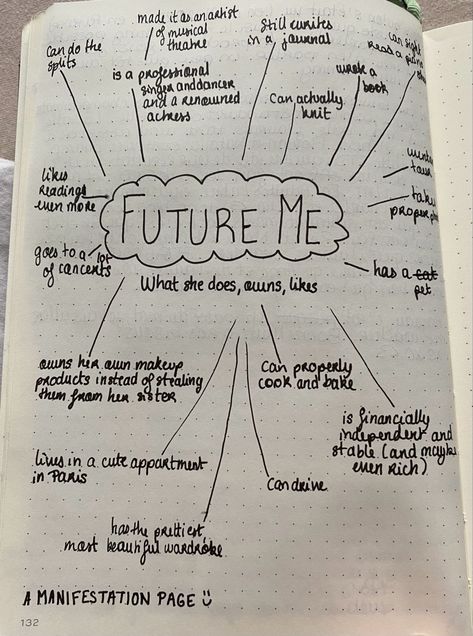 made it as an artist
of musical
theatre
Still writes
in a journal
can do the
splits
can sight
read a piano
is a professional
singer and dancer
and a renowned
actress
wrote a
book
can actually
knit
likes
reading
even more
FUTURE ME
goes to a lot
of concerts
What she does, owns, likes
has a cat
pet
owns her own makeup
products instead of stealing
them from her sister
can properly
cook and bake
is financially
independent and
stable (and maybe
even rich)
lives in a cute appartment
in Paris
can drive
has the prettiest
most beautiful wardrobe
A MANIFESTATION PAGE
132